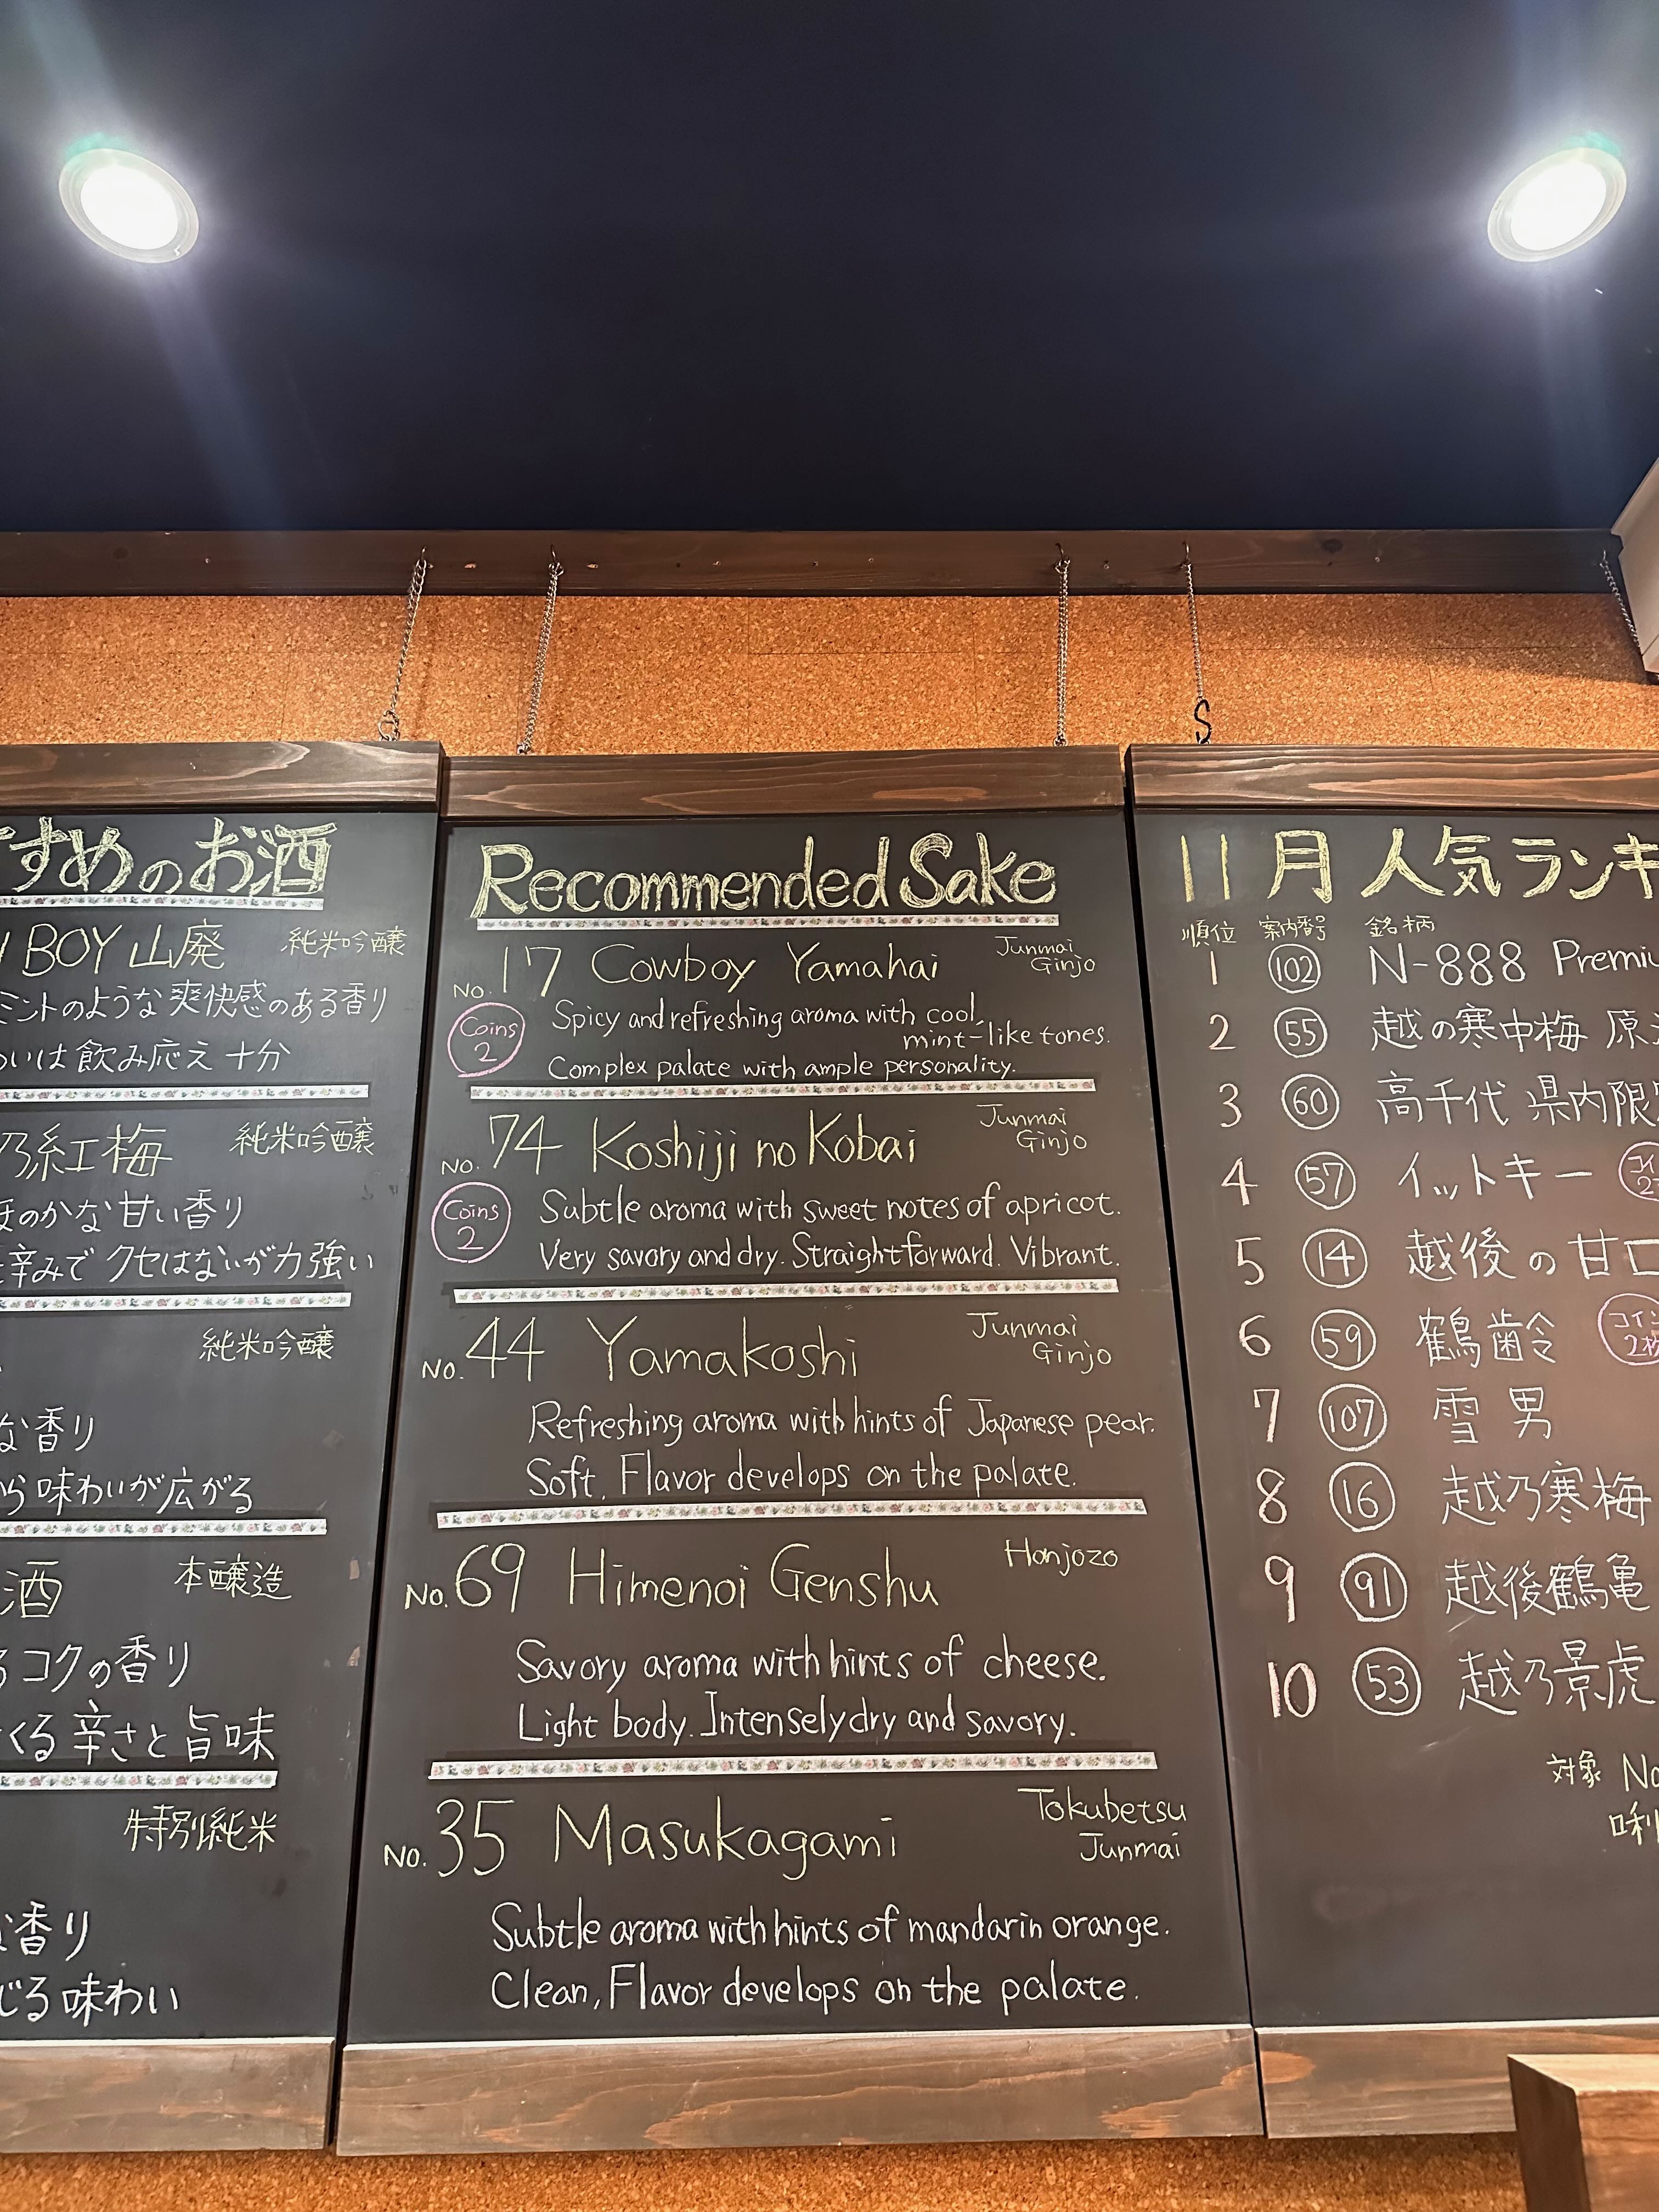 すすめのお酒
BOY 山廃 純米吟醸
ミントのような爽快感のある香り
わいは飲み応え十分
乃紅梅 純米吟醸
ほのかな甘い香り
辛みでクセはないが力強い
純米吟醸
な香り
ら味わいが広がる
酒 本醸造
るコクの香り
くる辛さと旨味
特別純米
な香り
じる味わい
Recommended Sake
No. 17 Cowboy Yamahai Junmai Ginjo
Coins 2
Spicy and refreshing aroma with cool, mint-like tones.
Complex palate with ample personality.
No. 74 Koshiji no Kobai Junmai Ginjo
Coins 2
Subtle aroma with sweet notes of apricot.
Very savory and dry. Straightforward. Vibrant.
No. 44 Yamakoshi Junmai Ginjo
Refreshing aroma with hints of Japanese pear.
Soft. Flavor develops on the palate.
No. 69 Himenoi Genshu Honjozo
Savory aroma with hints of cheese.
Light body. Intensely dry and savory.
No. 35 Masukagami Tokubetsu Junmai
Subtle aroma with hints of mandarin orange.
Clean, Flavor develops on the palate.
11月 人気ランキ
順位 案内番号 銘柄
1 102 N-888 Premiu
2 55 越の寒中梅 原
3 60 高千代 県内限
4 57 イットキー
5 14 越後の甘口
6 59 鶴齢 コイン 2枚
7 107 雪男
8 16 越乃寒梅
9 91 越後鶴亀
10 53 越乃景虎
対象 No
唎